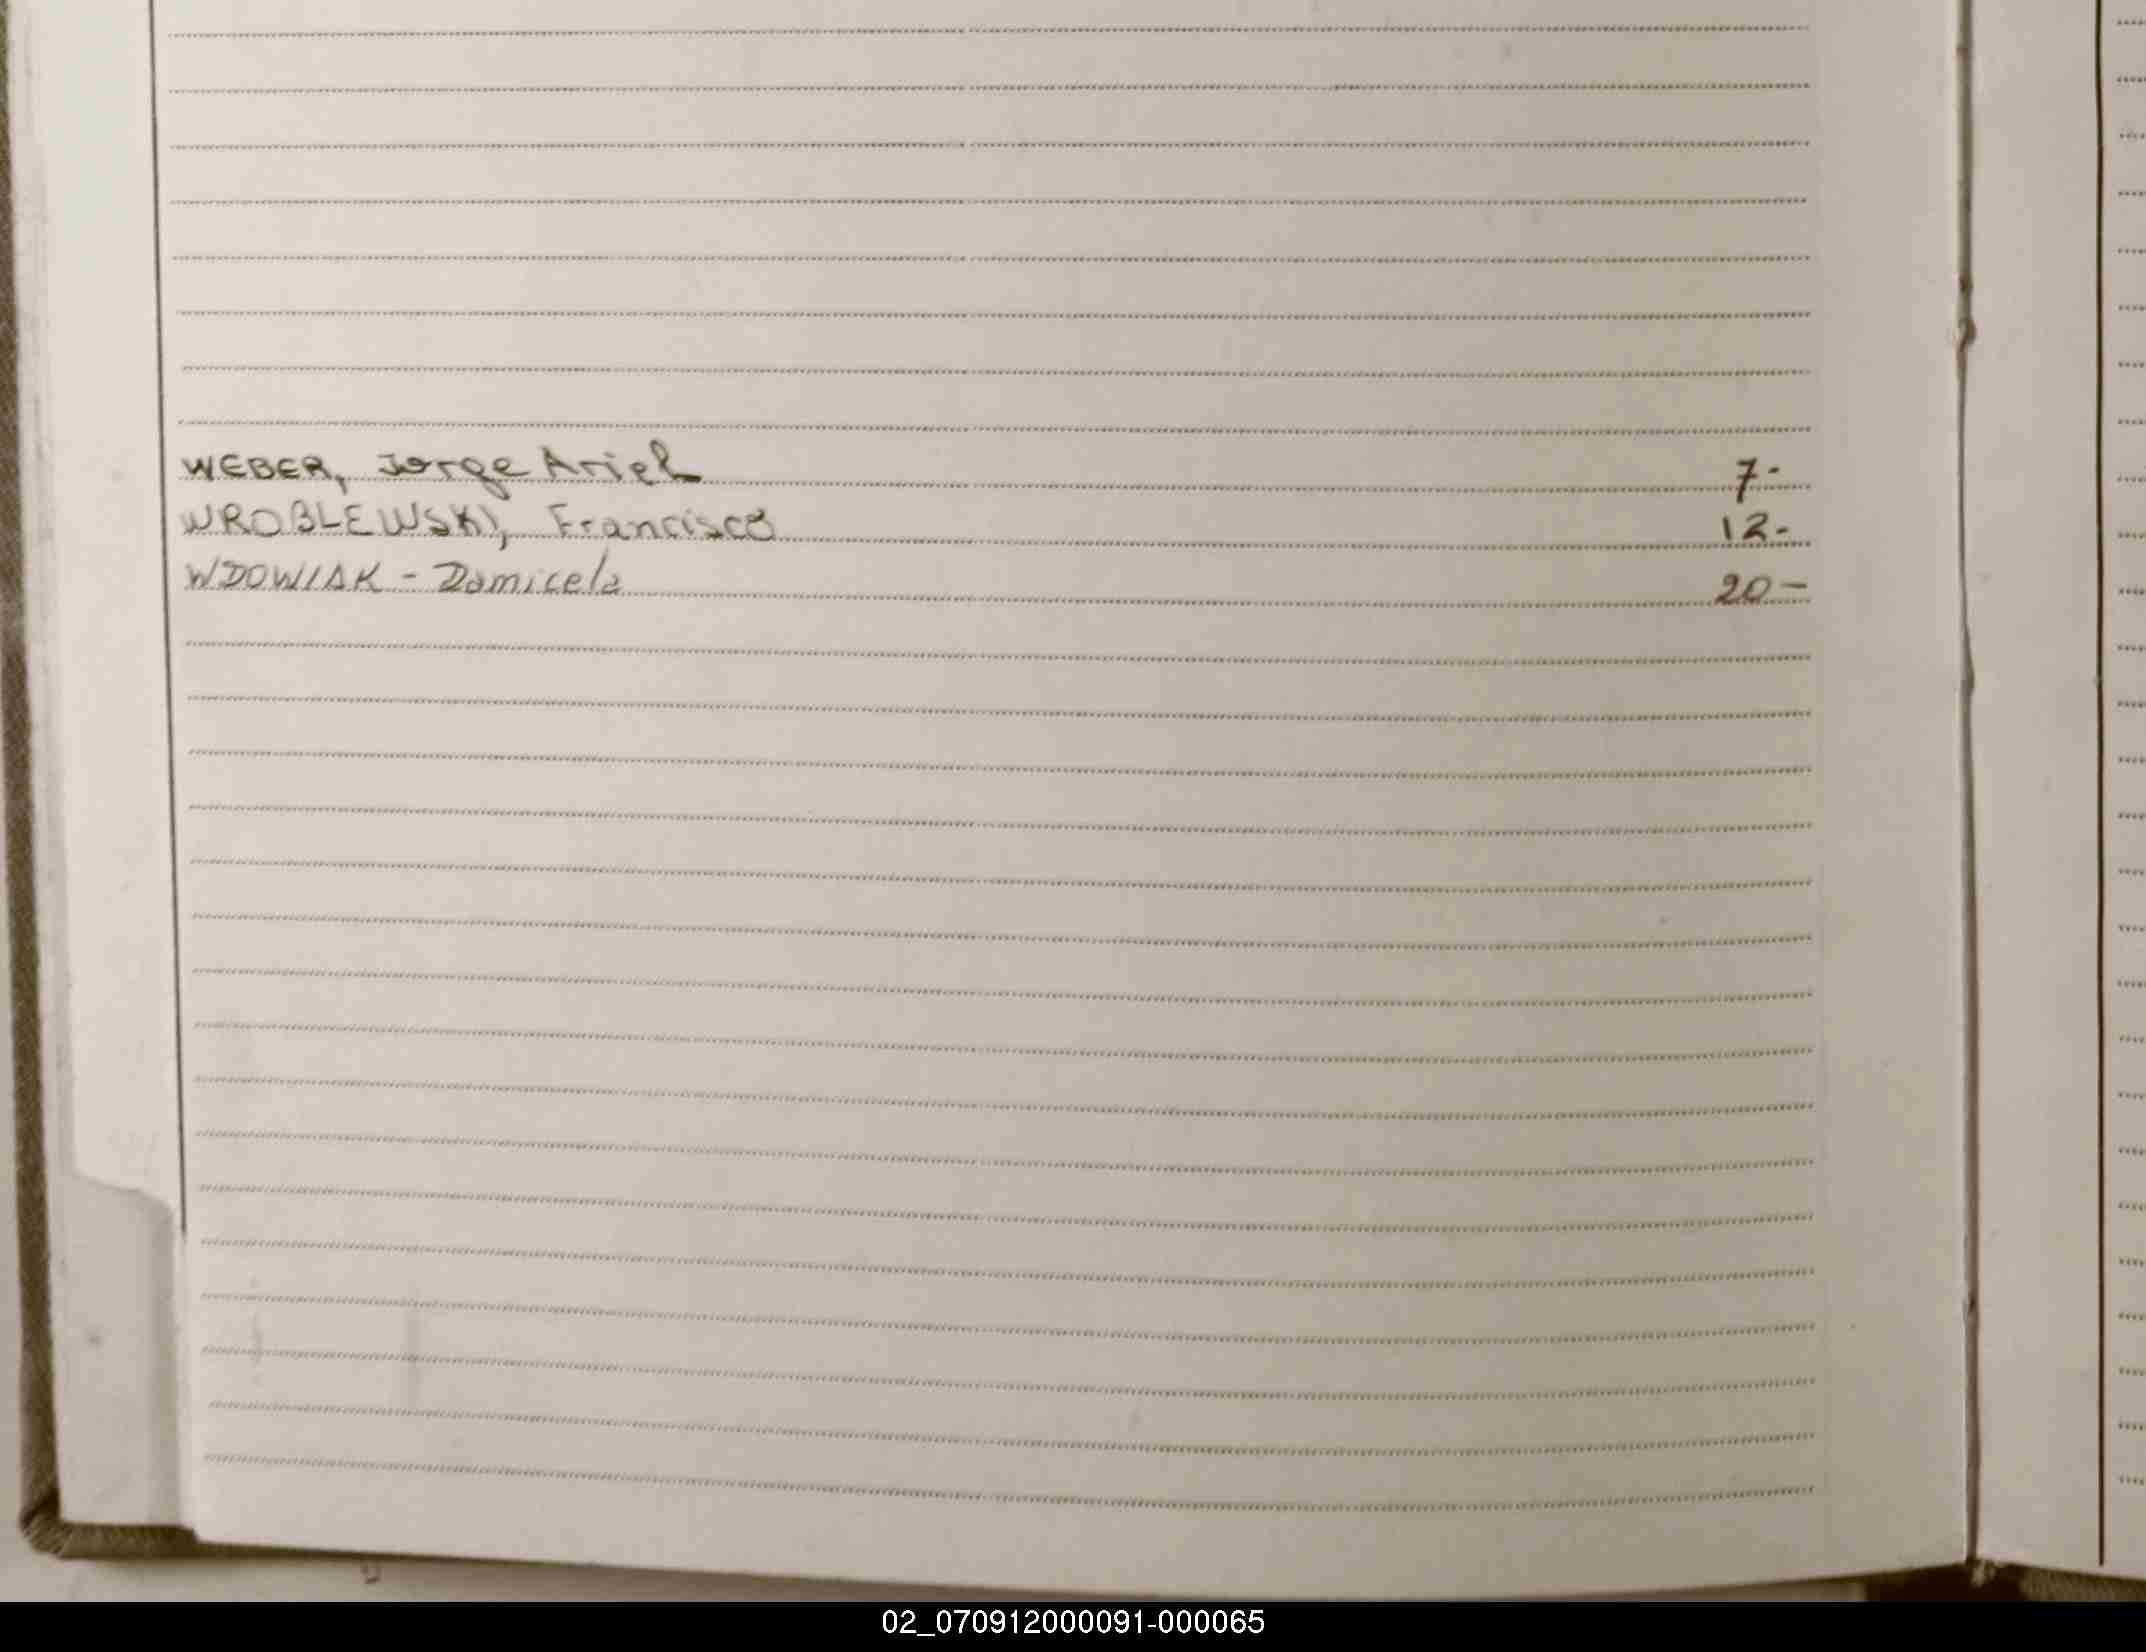 WEBER, Jorge Ariel 7-
WROBLEWSKI, Francisco 12-
WDOWIAK - Damicela 20-
02_070912000091-000065